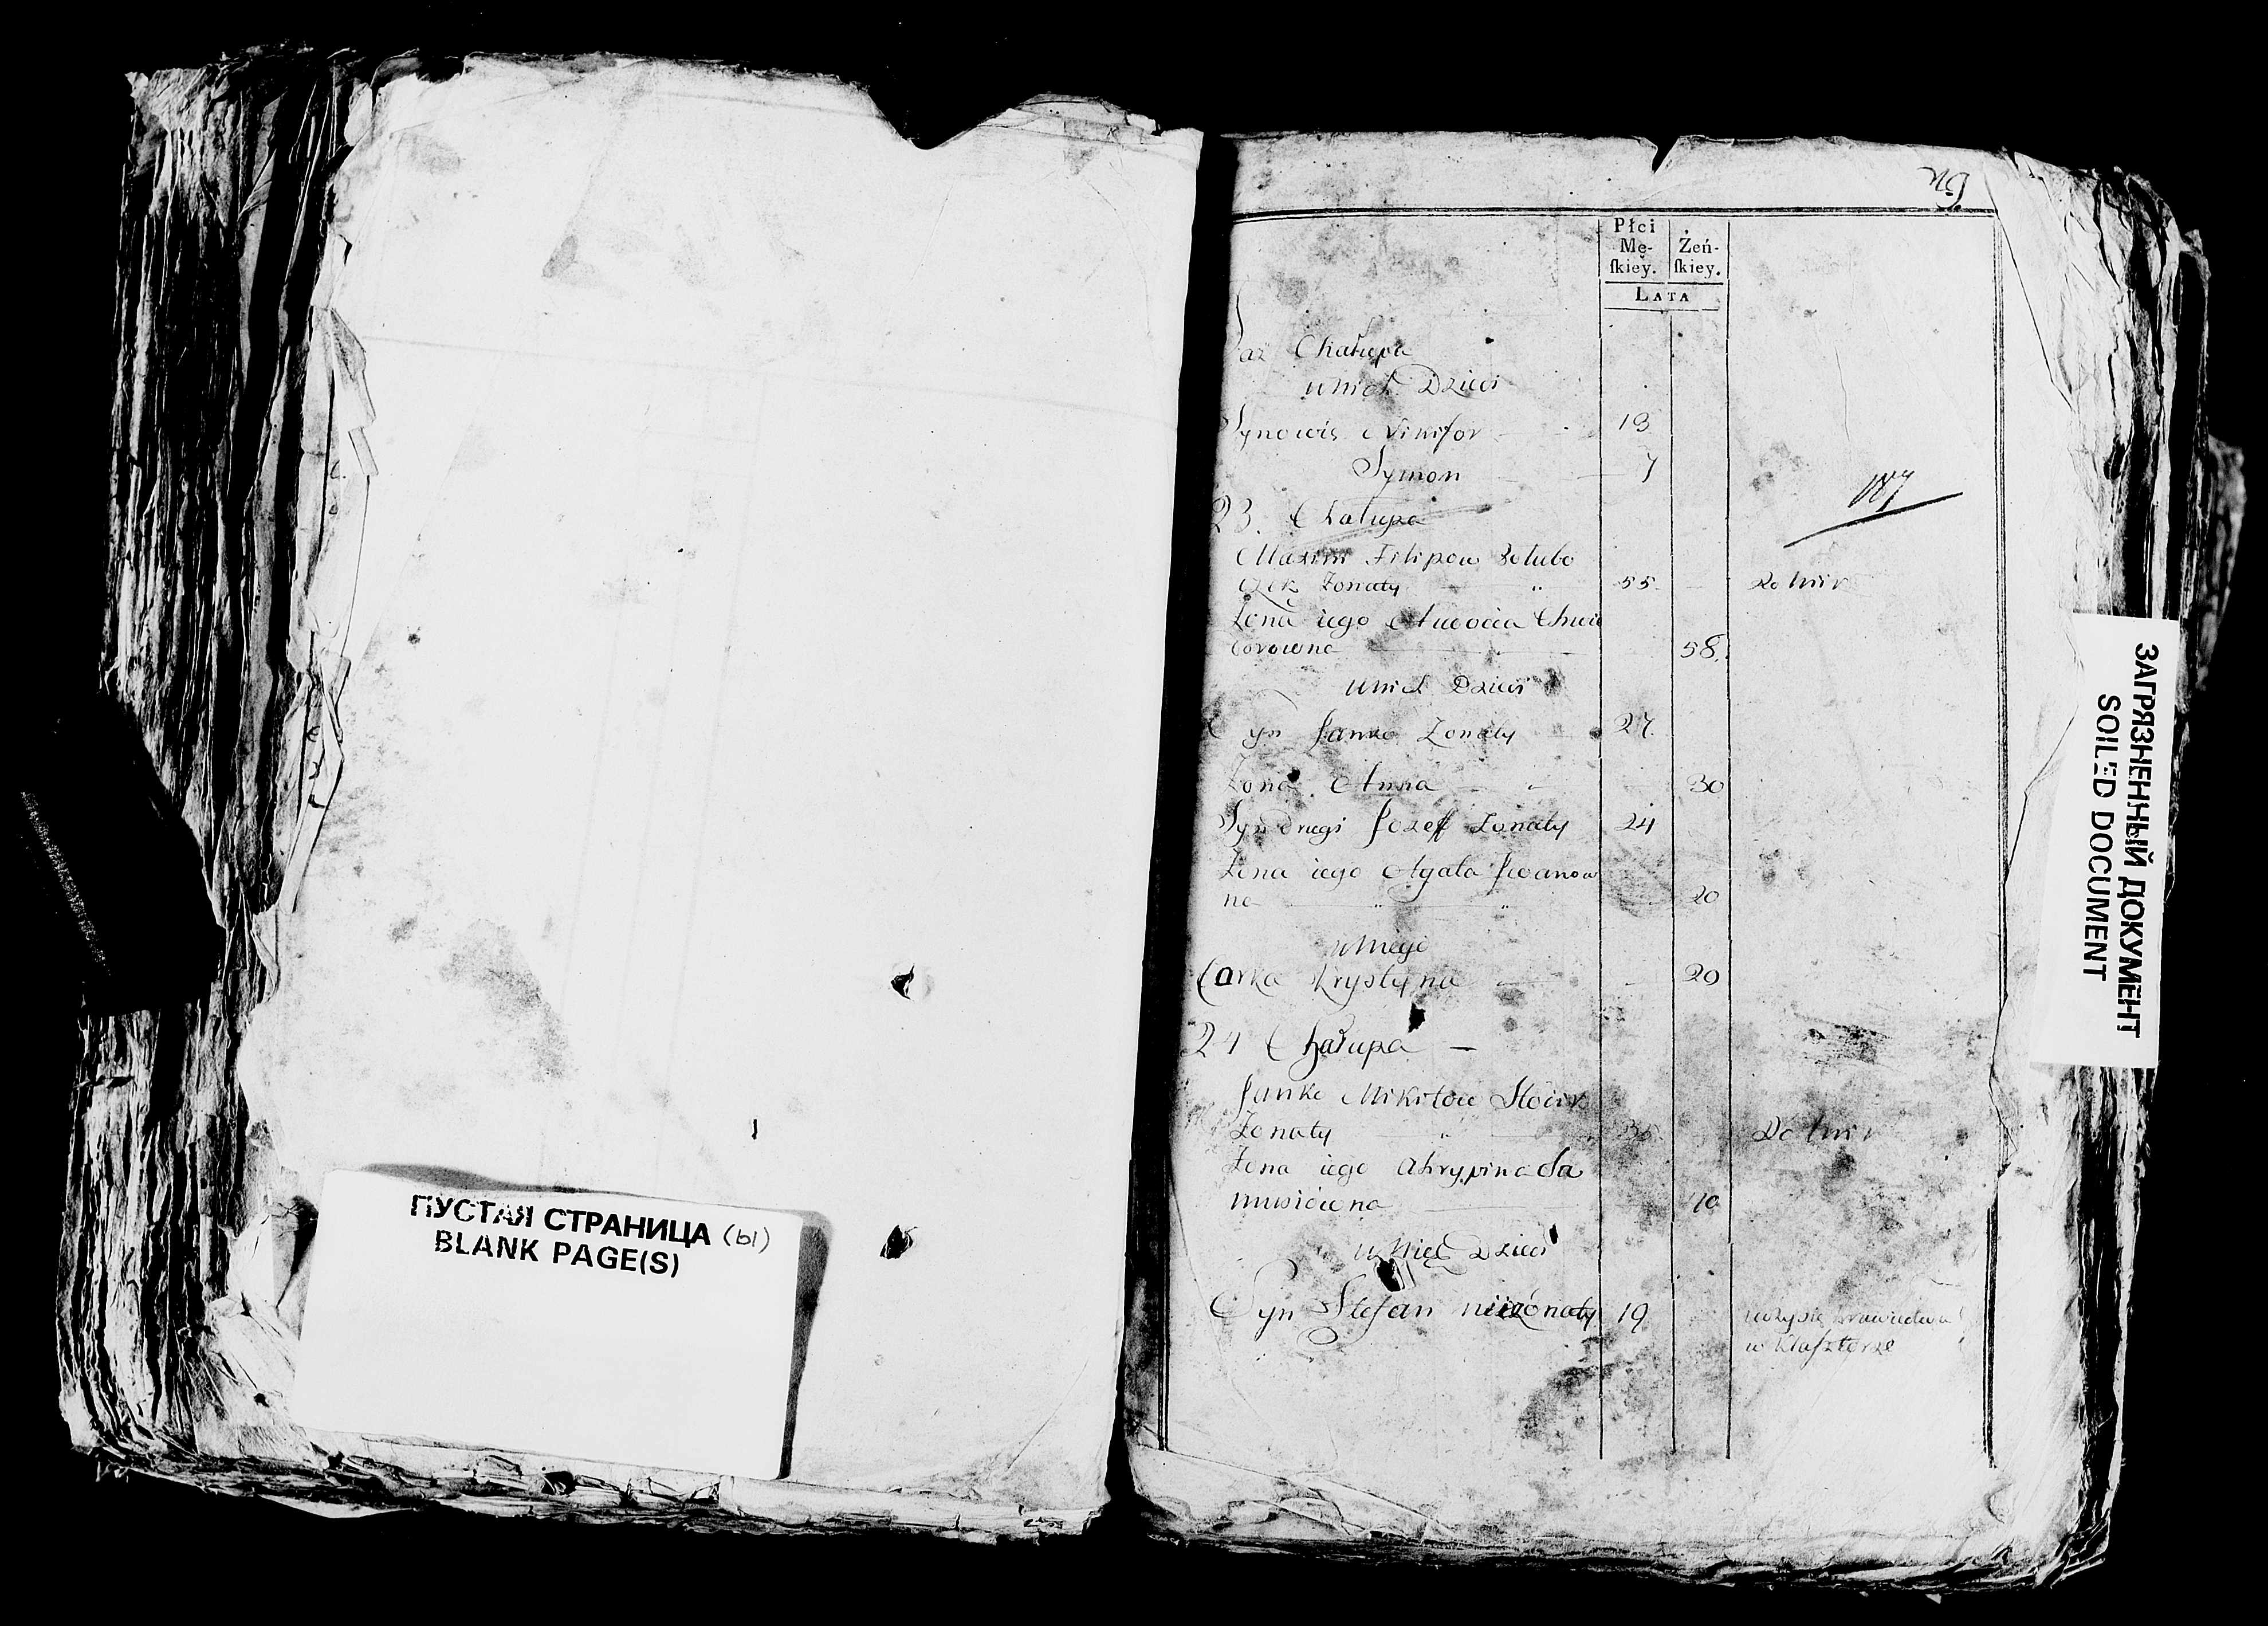 ПУСТАЯ СТРАНИЦА (bl)
BLANK PAGE(S)
Płci
Mę-
ſkiey.
Żeń-
ſkiey.
LATA
Chałupa
unich Dzieci
Synowie Nikifor 13
Symon 7
187
23. Chałupa
Maxim Filipow
Żonaty 55 Rolnik
Żona iego
58
unich Dzieci
Syn Janko Żonaty 27
Żona Anna 30
Syn drugi Jozeff Żonaty 24
Żona iego Agata Jwanow
na 20
u niego
Corka Krystyna 20
24 Chałupa
Janko Mikitow
Żonaty Rolnik
Żona iego Ahrypina Sa
40
u Nich Dzieci
Syn Stefan nieżonaty 19
w Klasztorze
ЗАГРЯЗНЕННЫЙ ДОКУМЕНТ
SOILED DOCUMENT